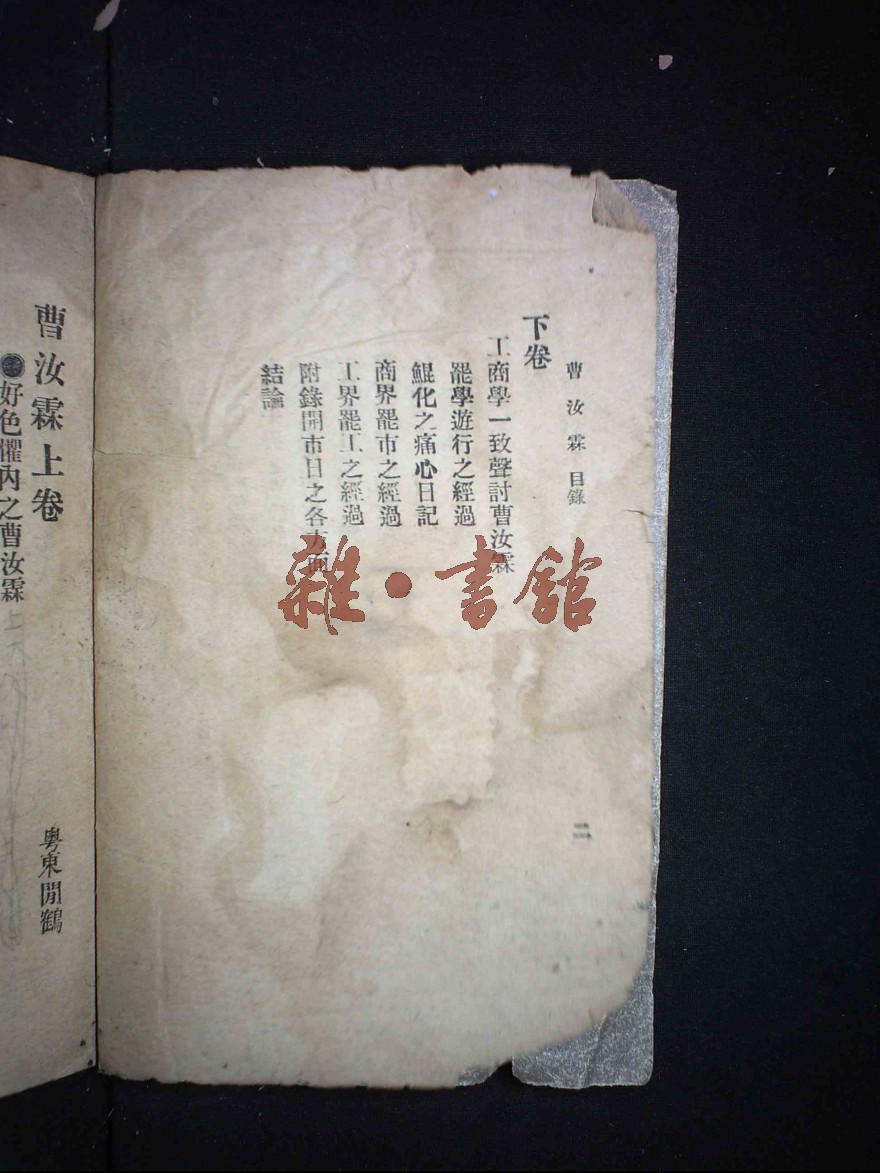 曹汝霖 目錄
下卷
工商學一致聲討曹汝霖
罷學遊行之經過
鯤化之痛心日記
商界罷市之經過
工界罷工之經過
附錄開市日之各方面
結論
二
曹汝霖上卷
粵東閒鶴
●好色懼內之曹汝霖
雜·書館